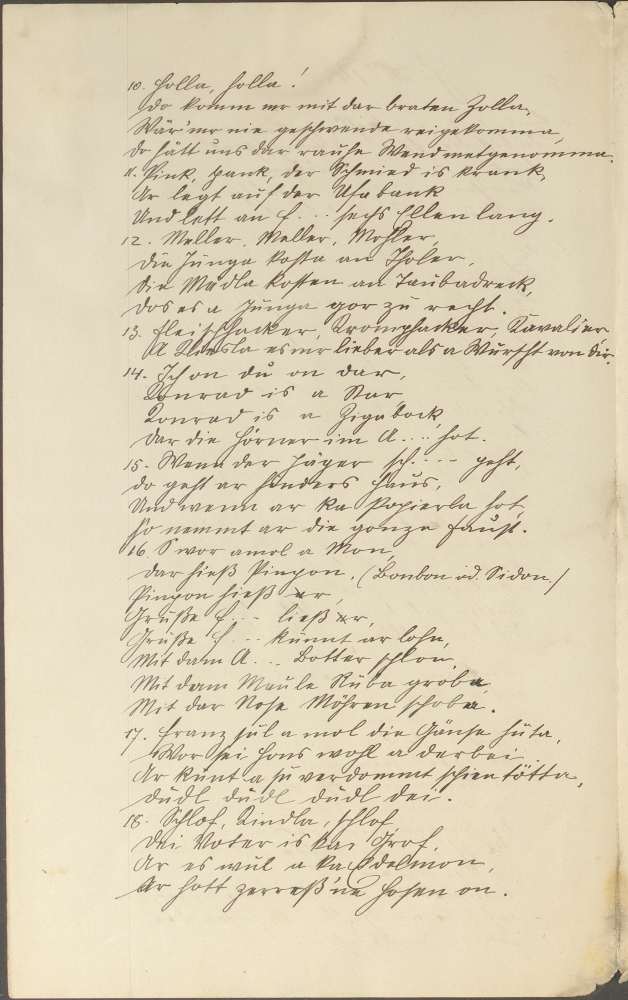 10. Holla, holla!
Do komm mr mit dar braten Zolla,
Wär' mr nie geschwende reigekomma,
Do hått uns dar rauhe Wend metgenomma.
11. Pink, pank, der Schmied is krank,
Ar legt auf der Ufabank
Und lett an f... sechs Ellen lang.
12. Meller, Meller, Mohler,
Die Junga kosta an Tholer,
Die Madla kosten an Taubadreck,
Dos es a Junga gor zu recht.
13. Fleischhacker, Kavalier
A es mr lieber als a Wurscht von dir.
14. Ich on du on dar,
Konrad is a Nar,
Konrad is a Zigabock,
Dar die Hörner im A.... hot.
15. Wenn der Jäger sch.... geht,
do geht ar hinders Haus,
Und wenn ar ka Papierla hot,
So nemmt ar die gonze Faust.
16. S wor amol a Mon,
Dar hieß Pinpon, (Bonbon od. Sidon.)
Pinpon hieß er,
Gruße f... ließ er,
Gruße f... kunnt ar losn,
Mit dam A... Botter schlon,
Mit dam Maule Rüba groba,
Mit dar Nose Möhren schoba.
17. Franz sul a mol die Gänse hüta,
Wor sei Hons wohl a derbei
Ar kunt a su verdommt schien tötta,
dudl dudl dudl dei.
18. Schlof, Kindla, schlof
Dei Voter is kai Grof.
Ar es wul a ka Edelmon,
Ar hott zerreß'ne Hosen on.